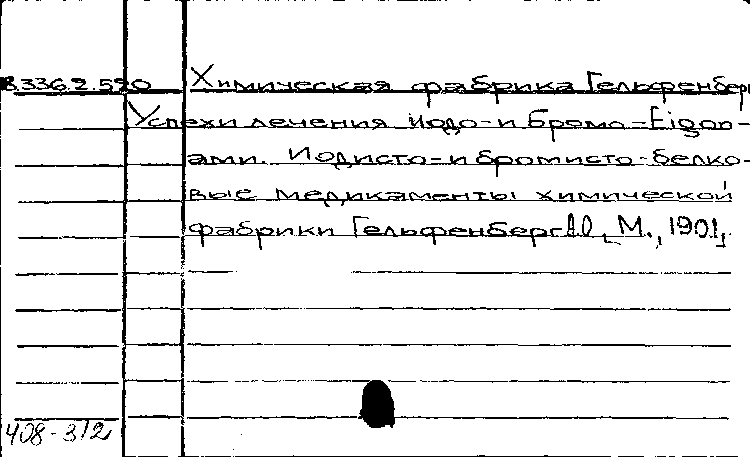 В336.2.520 Химическая фабрика Гельфенберг
Успехи лечения Иодо-и Бромо-Eigon-
ами. Иодисто-и бромисто-белко-
вые медикаменты химической
фабрики Гельфенберг М., 1901,
408-312